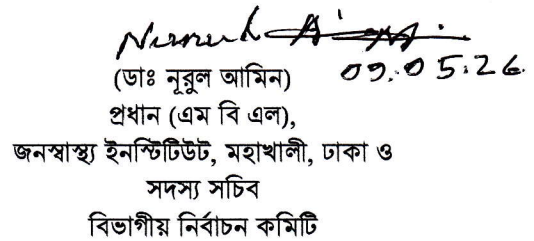 Nurul Amin
০৭.০৫.২৬
(ডাঃ নূরুল আমিন)
প্রধান (এম বি এল),
জনস্বাস্থ্য ইনস্টিটিউট, মহাখালী, ঢাকা ও
সদস্য সচিব
বিভাগীয় নির্বাচন কমিটি